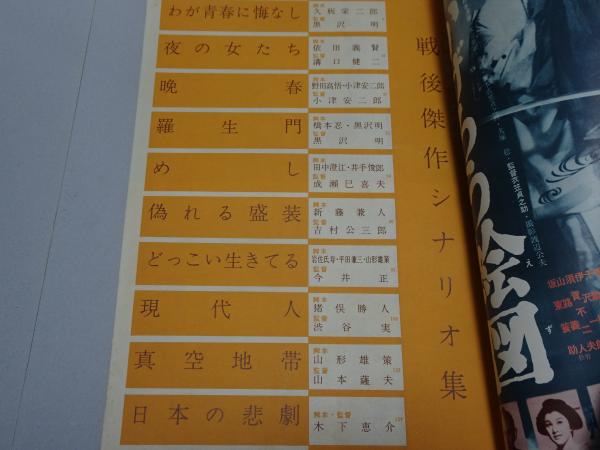 戦後傑作シナリオ集
わが青春に悔なし
脚本 久板栄二郎
監督 黒沢明
夜の女たち
脚本 依田義賢
監督 溝口健二
晩春
脚本 野田高梧・小津安二郎
監督 小津安二郎
羅生門
脚本 橋本忍・黒沢明
監督 黒沢明
めし
脚本 田中澄江・井手俊郎
監督 成瀬巳喜夫
偽れる盛装
脚本 新藤兼人
監督 吉村公三郎
どっこい生きてる
脚本 岩佐氏寿・平田兼三・山形雄策
監督 今井正
現代人
脚本 猪俣勝人
監督 渋谷実
真空地帯
脚本 山形雄策
監督 山本薩夫
日本の悲劇
脚本・監督
木下恵介
絵図
え
ず
監督衣笠貞之助
撮影渡辺公夫